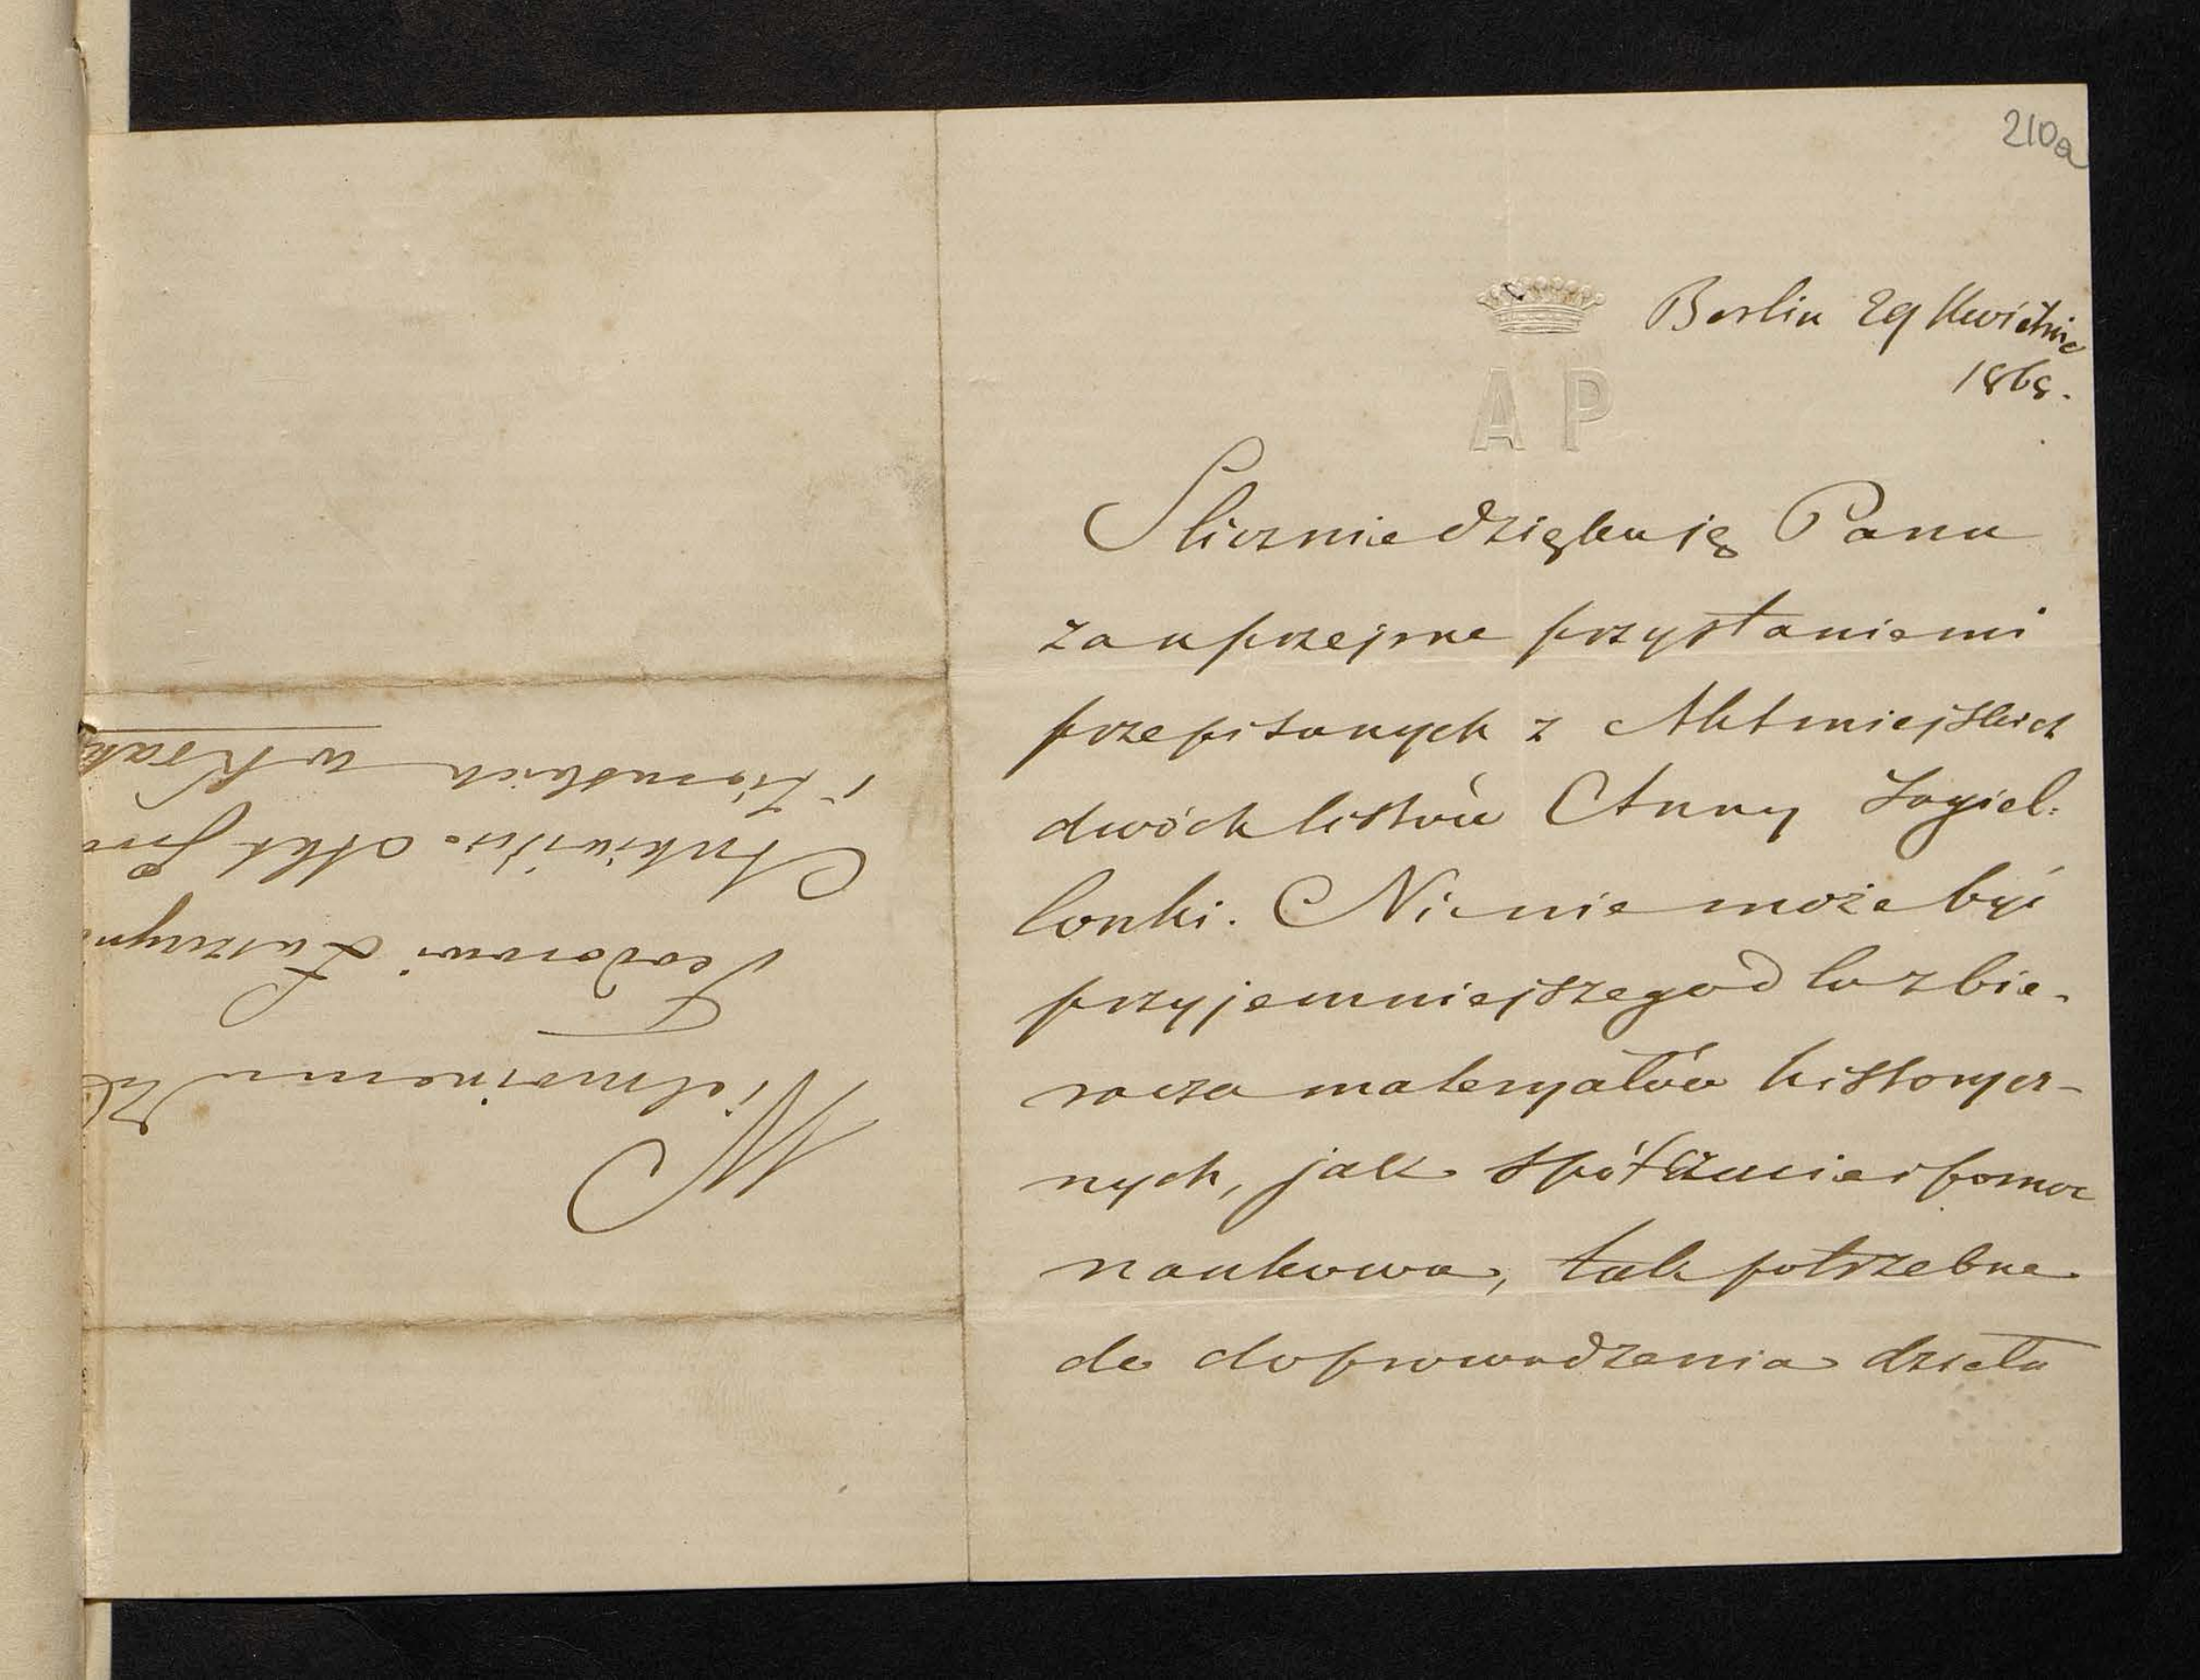 210a
Berlin 29 Kwietnia
1868.
A P
Slicznie dziękuję Panu
za uprzejme przysłanie mi
przepisanych z Akt miejskich
dwóch listów Anny Jagiel-
lonki. Nic nie może być
przyjemniejszego dla zbie-
racza materyałów history cz-
nych, jak spółczucie i pomoc
naukowa, tak potrzebne
do doprowadzenia dzieła
Wielmożnemu
Teodorowi
Archiwista Akt
i Ziemskich w Krak